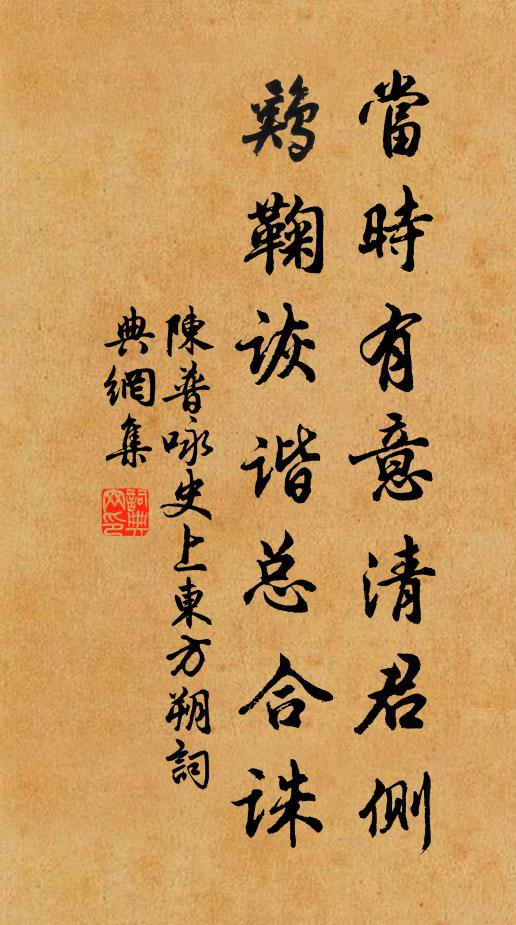 當時有意清君側
鷄鞠詼谐总合誅
陳普咏史上東方朔詞
典網集
詞典网印